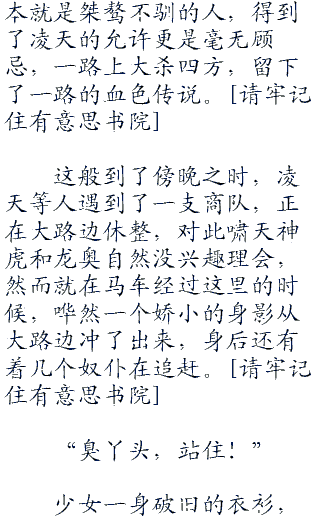 本就是桀骜不驯的人，得到
了凌天的允许更是毫无顾
忌，一路上大杀四方，留下
了一路的血色传说。[请牢记
住有意思书院]
这般到了傍晚之时，凌
天等人遇到了一支商队，正
在大路边休整，对此啸天神
虎和龙奥自然没兴趣理会，
然而就在马车经过这里的时
候，哗然一个娇小的身影从
大路边冲了出来，身后还有
着几个奴仆在追赶。[请牢记
住有意思书院]
“臭丫头，站住！”
少女一身破旧的衣衫，